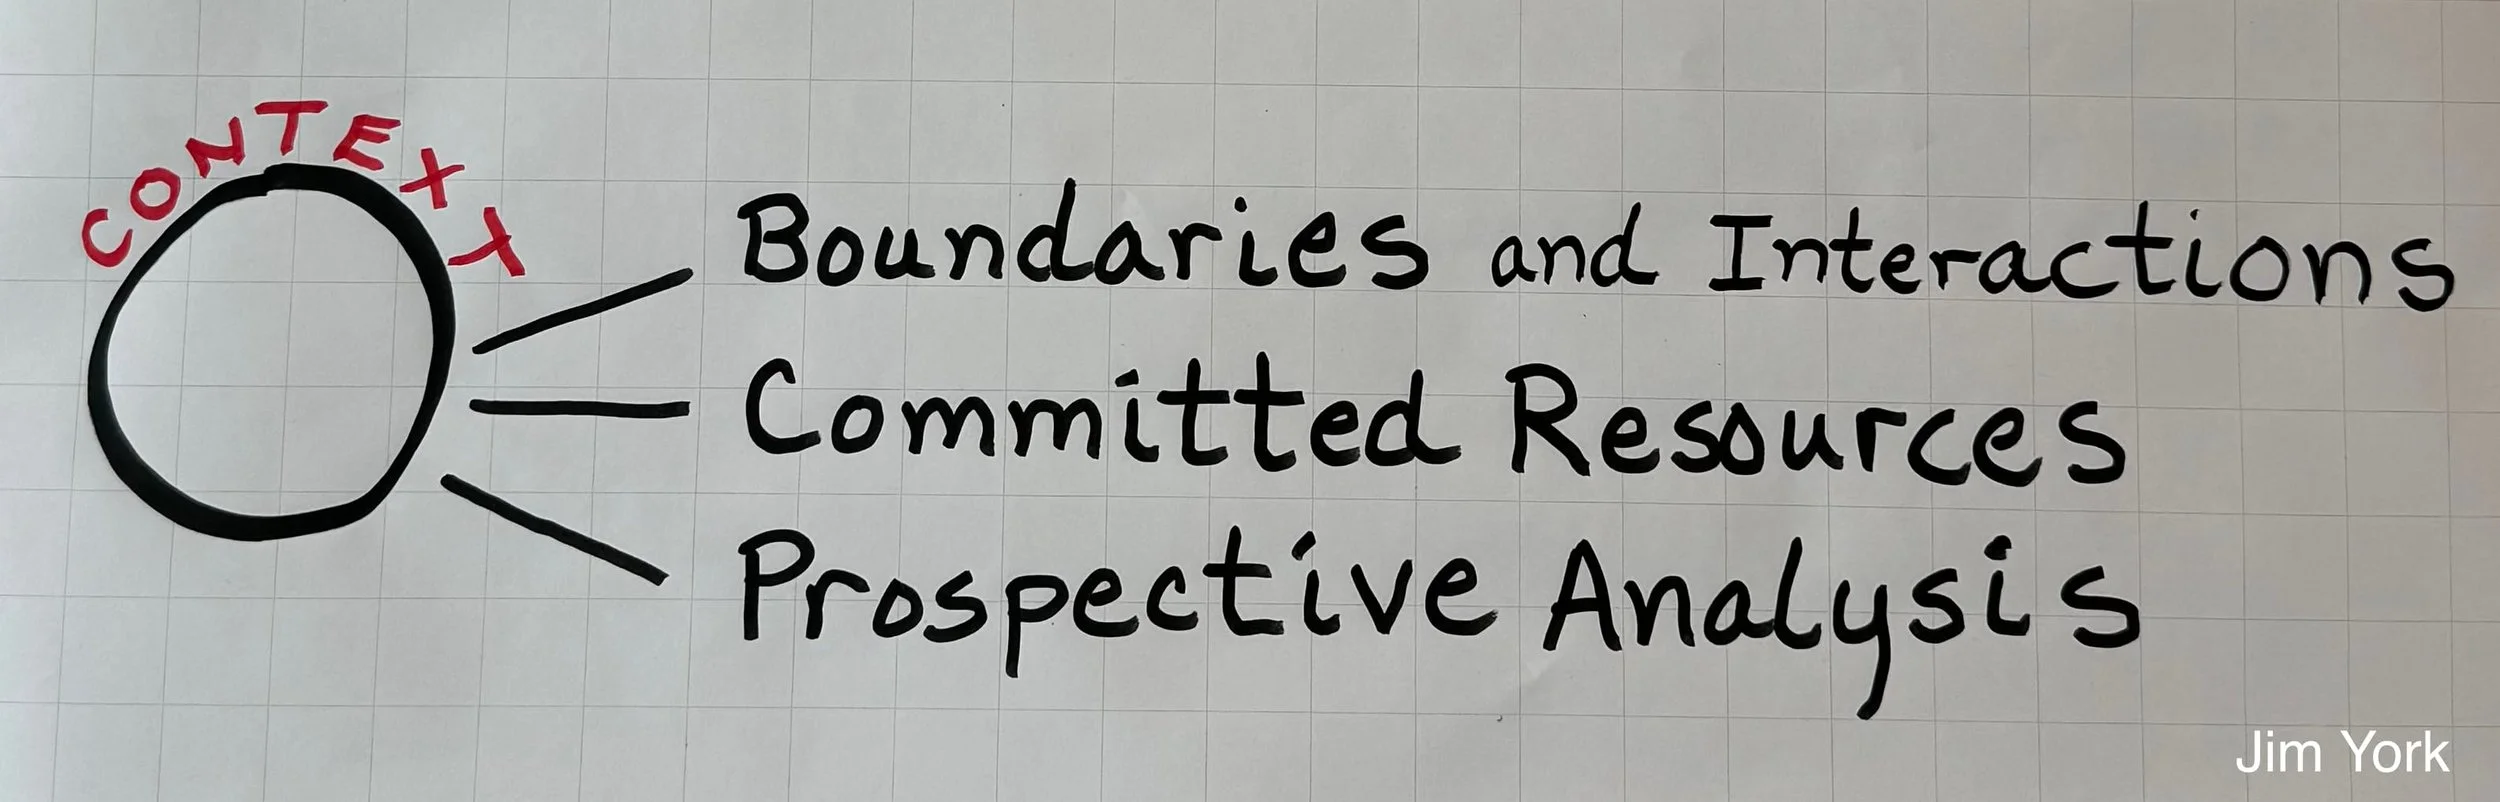 CONTEXT
Boundaries and Interactions
Committed Resources
Prospective Analysis
Jim York